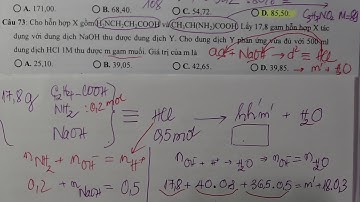 A. 171,00. B. 68,40. C. 54,72. D. 85,50.
Câu 73: Cho hỗn hợp X gồm H₂NCH₂CH₂COOH và CH₃CH(NH₂)COOH. Lấy 17,8 gam hỗn hợp X tác
dụng với dung dịch NaOH thu được dung dịch Y. Cho dung dịch Y phản ứng vừa đủ với 500 ml
dung dịch HCl 1M thu được m gam muối. Giá trị của m là
A. 25,10. B. 39,05. C. 42,65. D. 39,85. → m' + H₂O
17,8g
NH₂ : 0,2 mol
NaOH
≡ HCl 0,5mol → hh'm' + H₂O
n NH₂ + n OH⁻ = n H⁺
0,2 + n NaOH = 0,5
n OH⁻ + H⁺ → H₂O ⇒ n OH⁻ = n H₂O
17,8 + 40.0,3 + 36,5.0,5 = m' + 18.0,3